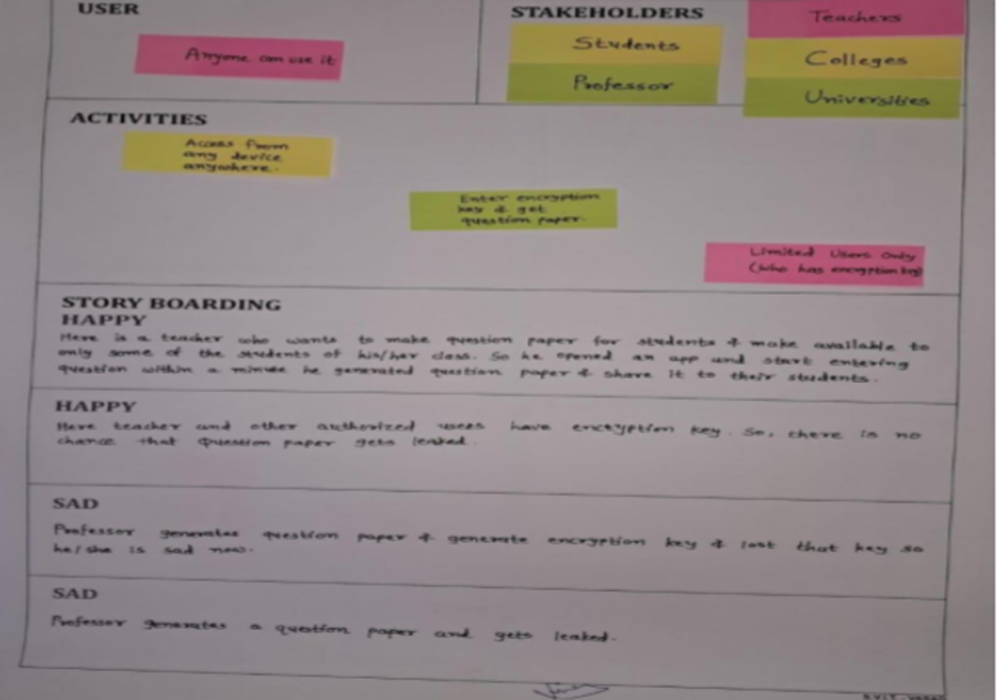 USER
Anyone can use it
STAKEHOLDERS
Students
Professor
Teachers
Colleges
Universities
ACTIVITIES
Access from
any device
anywhere.
Enter encryption
key & get
question paper.
Limited Users Only
(who has encryption key)
STORY BOARDING
HAPPY
Here is a teacher who wants to make question paper for students & make available to
only some of the students of his/her class. So he opened an app and start entering
question within a minute he generated question paper & share it to their students.
HAPPY
Here teacher and other authorized users have encryption key. So, there is no
chance that Question paper gets leaked.
SAD
Professor generates question paper & generate encryption key & lost that key so
he/she is sad now.
SAD
Professor generates a question paper and gets leaked.